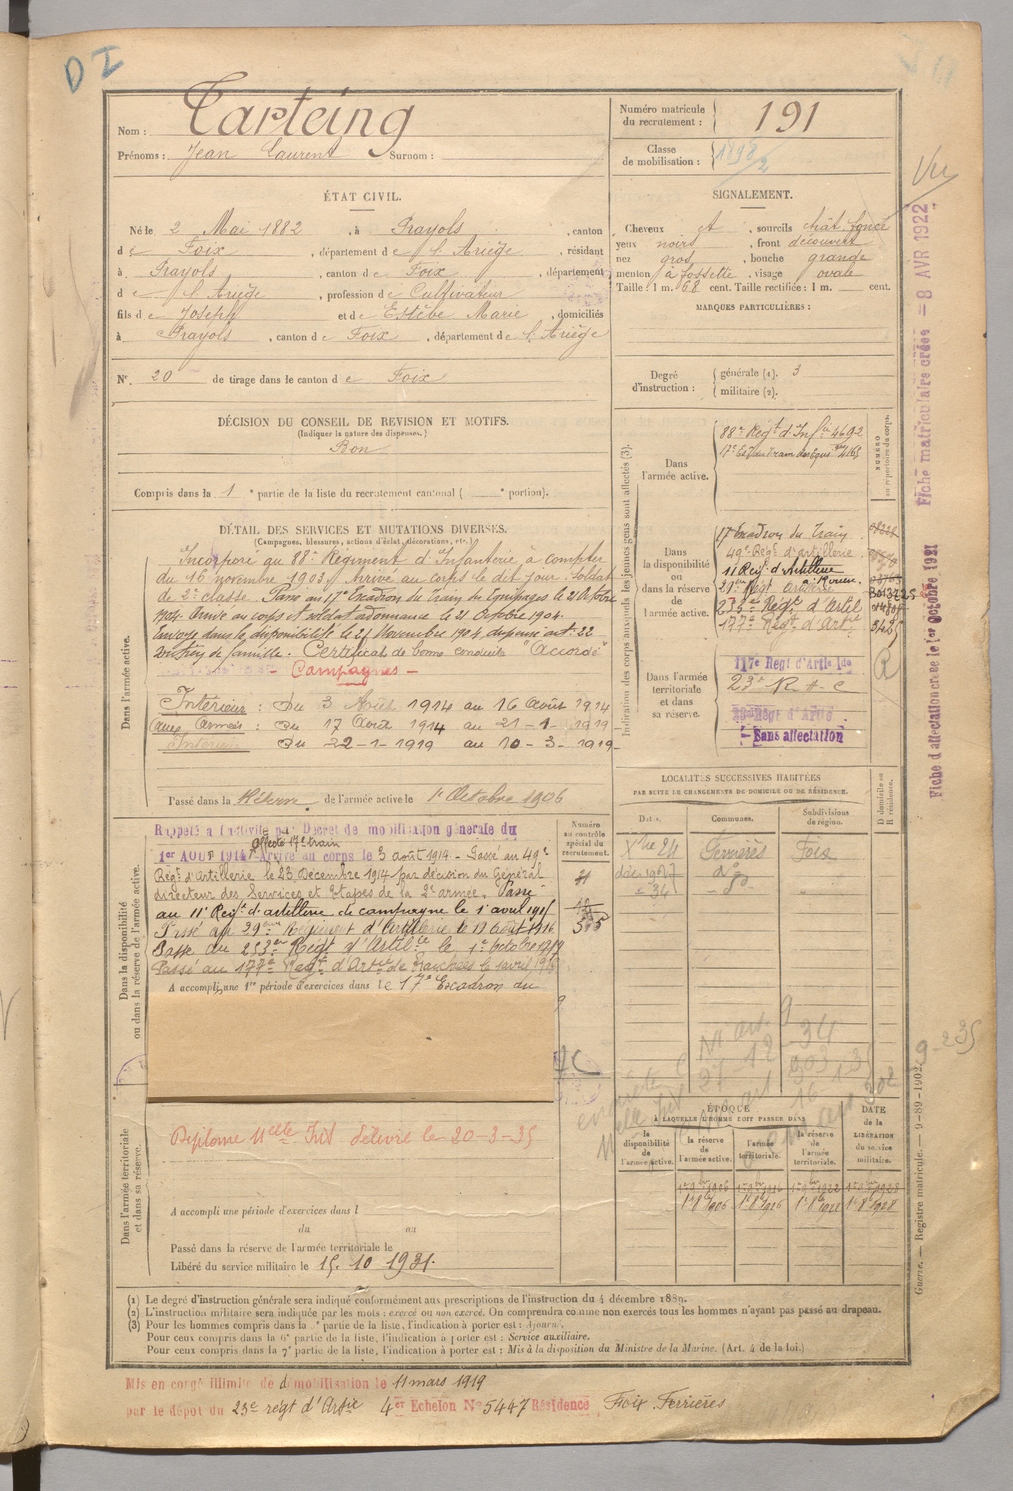 D I
Nom : Tarteing
Prénoms : Jean Laurent Surnom :
Numéro matricule
du recrutement : 191
Classe
de mobilisation : 1898/2
Vu
ÉTAT CIVIL.
Né le 2 Mai 1882, à Prayols, canton
de Foix, département de l'Ariège, résidant
à Prayols, canton de Foix, département
de l'Ariège, profession de Cultivateur
fils de Joseph et de Estèbe Marie, domiciliés
à Prayols, canton de Foix, département de l'Ariège
N° 20 de tirage dans le canton de Foix
SIGNALEMENT.
Cheveux et, sourcils chât. foncé
yeux noirs, front découvert
nez gros, bouche grande
menton à fossette, visage ovale
Taille : 1 m. 68 cent. Taille rectifiée : 1 m. cent.
MARQUES PARTICULIÈRES :
Degré
d'instruction :
générale (1). 3
militaire (2).
DÉCISION DU CONSEIL DE REVISION ET MOTIFS.
(Indiquer la nature des dispenses.)
Bon
Compris dans la 1e partie de la liste du recrutement cantonal ( e portion).
DÉTAIL DES SERVICES ET MUTATIONS DIVERSES.
(Campagnes, blessures, actions d'éclat, décorations, etc.)
Dans l'armée active.
Incorporé au 88e Régiment d'Infanterie à compter
du 16 novembre 1903. Arrivé au corps le dit jour. Soldat
de 2e classe. Passé au 17e Escadron du Train des Equipages le 21 Octobre
1904. Arrivé au corps et soldat ordonnance le 21 Octobre 1904.
Envoyé dans la disponibilité le 21 Novembre 1904 dispensé art. 22
soutien de famille. Certificat de bonne conduite "Accordé"
- Campagnes -
Intérieur : Du 3 Août 1914 au 16 Août 1914
Aux Armées : Du 17 Août 1914 au 21-1-1919
Intérieur Du 22-1-1919 au 10-3-1919
Passé dans la Réserve de l'armée active le 1er Octobre 1906
Indication des corps auxquels les jeunes gens sont affectés (3).
NUMÉRO
au répertoire du corps.
Dans
l'armée active.
88e Regt d'Infie 4692
17e Esc du Train des Equiges 4165
Dans
la disponibilité
ou
dans la réserve
de
l'armée active.
17 Escadron du Train
49e Régt d'artillerie
11 Regt d'Artillerie
21e Régt Artillerie à Rouen
235e Regt d'Artil
177e Régt d'Artie
Dans l'armée
territoriale
et dans
sa réserve.
117e Regt d'Artie Lde
23e R A C
23e Régt d'Artie
Sans affectation
Fiche matriculaire créée - 8 AVR 1922
Fiche d'affectation créée le 1er octobre 1921
LOCALITÉS SUCCESSIVES HABITÉES
PAR SUITE DE CHANGEMENTS DE DOMICILE OU DE RÉSIDENCE.
Dates.
Communes.
Subdivisions
de région.
D domicile ou
R résidence.
Xbre 21 Ferrières Foix
Numéro
au contrôle
spécial du
recrutement.
Dans la disponibilité
ou dans la réserve de l'armée active.
Rappelé à l'activité par Décret de mobilisation générale du
affecté 17e train
1er AOUT 1914. Arrivé au corps le 3 août 1914 - Passé au 49e
Régt d'Artillerie le 23 Decembre 1914 par décision du Général
directeur des Services et Etapes de la 2e armée. Passé
au 11e Regt d'artillerie de campagne le 1 avril 1915
Passé au 29e Régiment d'Artillerie le 19 août 1916
Passé au 233e Régt d'Artilie le 1er octobre 1917
Passé au 177e Regt d'Artie de Tranchées le 1 avril 1918
A accompli une 1re période d'exercices dans le 17e Escadron du
Dans l'armée territoriale
et dans sa réserve.
Diplome Melle Inst délivré le 20-3-35
A accompli une période d'exercices dans l
du au
Passé dans la réserve de l'armée territoriale le
Libéré du service militaire le 15.10 1931.
ÉPOQUE
À LAQUELLE L'HOMME DOIT PASSER DANS
la
disponibilité
de
l'armée active.
la réserve
de
l'armée active.
l'armée
territoriale.
la réserve
de
l'armée
territoriale.
DATE
de la
LIBÉRATION
du service
militaire.
1er 8bre 1906 1er 8bre 1916 1er 8bre 1922 1er 8bre 1928
Guerre. — Registre matricule. — 9-89-1902.
(1) Le degré d'instruction générale sera indiqué conformément aux prescriptions de l'instruction du 4 décembre 1889.
(2) L'instruction militaire sera indiquée par les mots : exercé ou non exercé. On comprendra comme non exercés tous les hommes n'ayant pas passé au drapeau.
(3) Pour les hommes compris dans la 5e partie de la liste, l'indication à porter est : Ajourné.
Pour ceux compris dans la 6e partie de la liste, l'indication à porter est : Service auxiliaire.
Pour ceux compris dans la 7e partie de la liste, l'indication à porter est : Mis à la disposition du Ministre de la Marine. (Art. 4 de la loi.)
Mis en congé illimité de démobilisation le 11 mars 1919
par le dépôt du 23e régt d'Artie 4er Echelon N° 5447 Résidence Foix Ferrières